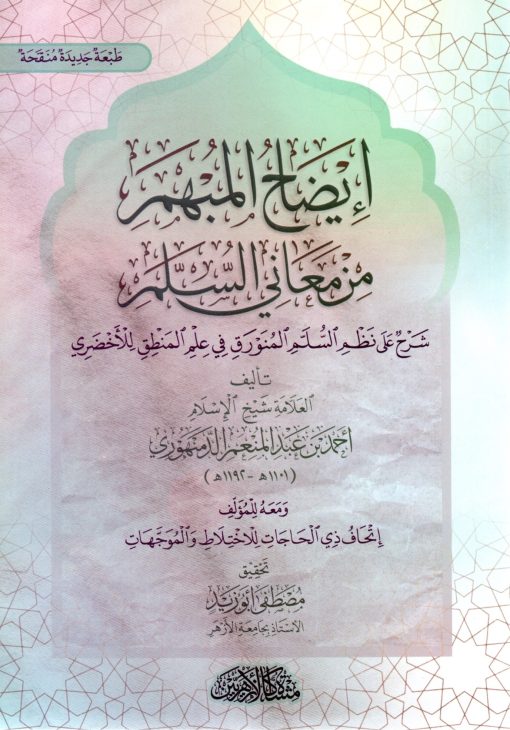 طَبْعَةٌ جَدِيدَةٌ مُنَقَّحَةٌ
إِيضَاحُ المُبْهَمِ
مِنْ مَعَانِي السُّلَّمِ
شَرْحٌ عَلَى نَظْمِ السُّلَّمِ المُنَوْرَقِ فِي عِلْمِ المَنْطِقِ لِلْأَخْضَرِي
تأليف
العَلَّامَة شَيْخ الإِسْلَام
أَحْمَد بْن عَبْد المُنْعِم الدَّمَنْهُوري
(١١٠١هـ - ١١٩٢هـ)
وَمَعَهُ لِلْمُؤَلِّفِ
إِتْحَافُ ذِي الْحَاجَاتِ لِلِاخْتِلَاطِ وَالْمُوَجَّهَاتِ
تحقيق
مُصْطَفَى أَبُو زَيْد
الأستاذ بجامعة الأزهر